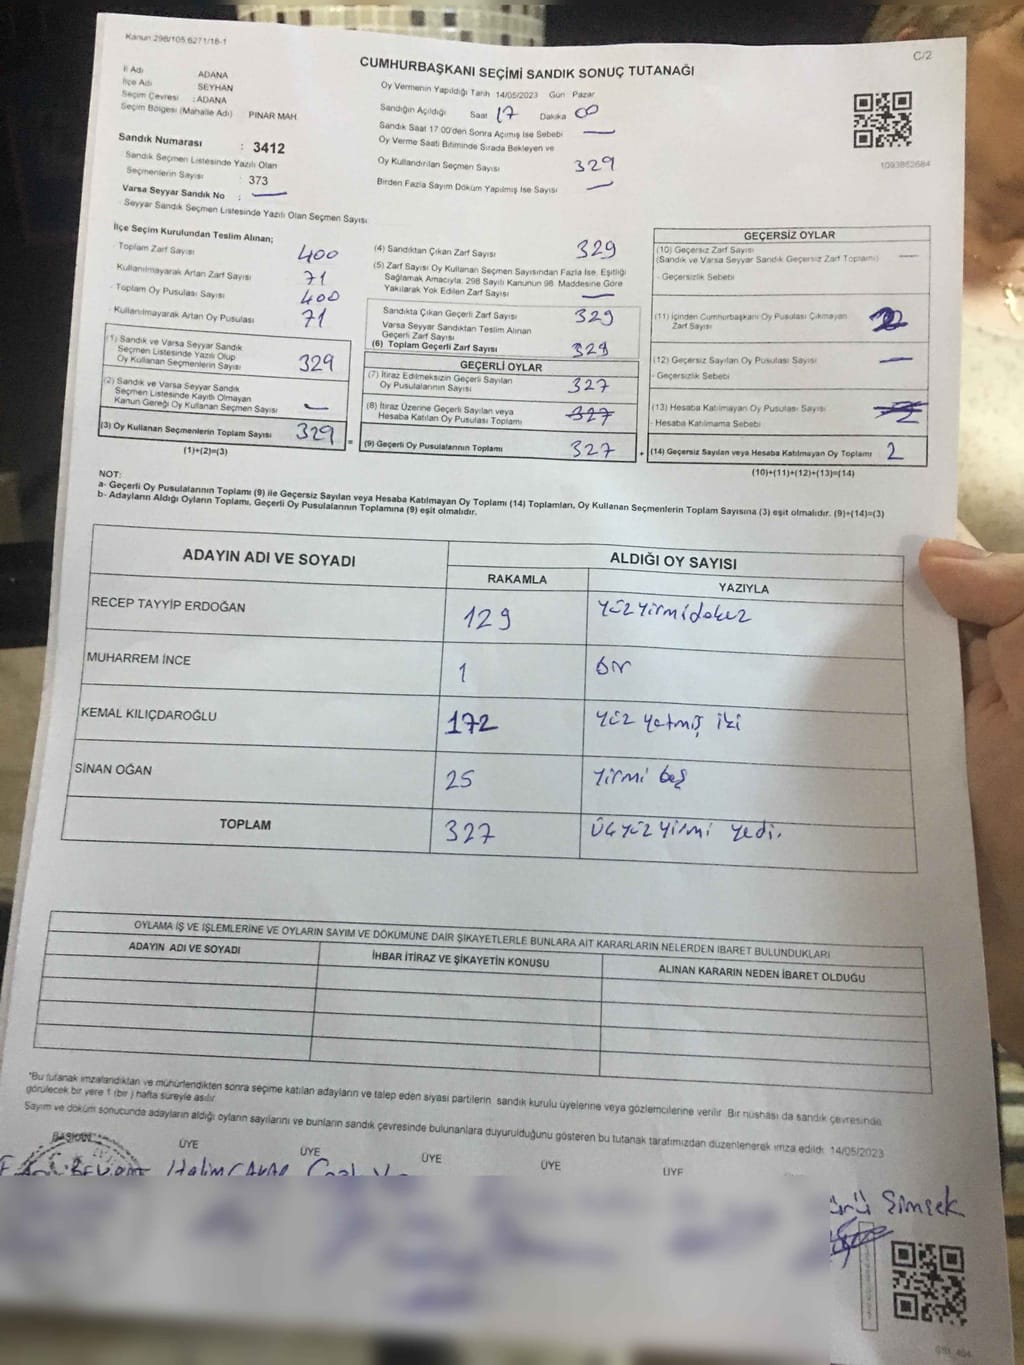 Kanun 298/105.6271/16-1
C/2
CUMHURBAŞKANI SEÇİMİ SANDIK SONUÇ TUTANAĞI
İl Adı ADANA
İlçe Adı SEYHAN
Seçim Çevresi : ADANA
Seçim Bölgesi (Mahalle Adı) PINAR MAH
Sandık Numarası : 3412
Sandık Seçmen Listesinde Yazılı Olan
Seçmenlerin Sayısı : 373
Varsa Seyyar Sandık No : —
Seyyar Sandık Seçmen Listesinde Yazılı Olan Seçmen Sayısı
Oy Vermenin Yapıldığı Tarih 14/05/2023 Gün Pazar
Sandığın Açıldığı Saat 17 Dakika 00
Sandık Saat 17 00'den Sonra Açımış İse Sebebi —
Oy Verme Saati Bitiminde Sırada Bekleyen ve
Oy Kullandırılan Seçmen Sayısı 329
Birden Fazla Sayım Döküm Yapılmış İse Sayısı —
1093862684
İlçe Seçim Kurulundan Teslim Alınan;
Toplam Zarf Sayısı 400
Kullanılmayarak Artan Zarf Sayısı 71
Toplam Oy Pusulası Sayısı 400
Kullanılmayarak Artan Oy Pusulası 71
(1) Sandık ve Varsa Seyyar Sandık
Seçmen Listesinde Yazılı Olup
Oy Kullanan Seçmenlerin Sayısı 329
(2) Sandık ve Varsa Seyyar Sandık
Seçmen Listesinde Kayıtlı Olmayan
Kanun Gereği Oy Kullanan Seçmen Sayısı —
(3) Oy Kullanan Seçmenlerin Toplam Sayısı 329 =
(1)+(2)=(3)
(4) Sandıktan Çıkan Zarf Sayısı 329
(5) Zarf Sayısı Oy Kullanan Seçmen Sayısından Fazla İse, Eşitliği
Sağlamak Amacıyla, 298 Sayılı Kanunun 98. Maddesine Göre
Yakılarak Yok Edilen Zarf Sayısı —
Sandıkta Çıkan Geçerli Zarf Sayısı 329
Varsa Seyyar Sandıktan Teslim Alınan
Geçerli Zarf Sayısı
(6) Toplam Geçerli Zarf Sayısı 329
GEÇERLİ OYLAR
(7) İtiraz Edilmeksizin Geçerli Sayılan
Oy Pusulalarının Sayısı 327
(8) İtiraz Üzerine Geçerli Sayılan veya
Hesaba Katılan Oy Pusulası Toplamı 327
(9) Geçerli Oy Pusulalarının Toplamı 327 +
GEÇERSİZ OYLAR
(10) Geçersiz Zarf Sayısı —
(Sandık ve Varsa Seyyar Sandık Geçersiz Zarf Toplamı)
- Geçersizlik Sebebi
(11) İçinden Cumhurbaşkanı Oy Pusulası Çıkmayan
Zarf Sayısı 2
(12) Geçersiz Sayılan Oy Pusulası Sayısı —
- Geçersizlik Sebebi
(13) Hesaba Katılmayan Oy Pusulası Sayısı 2
- Hesaba Katılmama Sebebi
(14) Geçersiz Sayılan veya Hesaba Katılmayan Oy Toplamı 2
(10)+(11)+(12)+(13)=(14)
NOT:
a- Geçerli Oy Pusulalarının Toplamı (9) ile Geçersiz Sayılan veya Hesaba Katılmayan Oy Toplamı (14) Toplamları, Oy Kullanan Seçmenlerin Toplam Sayısına (3) eşit olmalıdır. (9)+(14)=(3)
b- Adayların Aldığı Oyların Toplamı, Geçerli Oy Pusulalarının Toplamına (9) eşit olmalıdır.
ADAYIN ADI VE SOYADI ALDIĞI OY SAYISI
RAKAMLA YAZIYLA
RECEP TAYYİP ERDOĞAN 129 yüz yirmi dokuz
MUHARREM İNCE 1 bir
KEMAL KILIÇDAROĞLU 172 yüz yetmiş iki
SİNAN OĞAN 25 yirmi beş
TOPLAM 327 üç yüz yirmi yedi.
OYLAMA İŞ VE İŞLEMLERİNE VE OYLARIN SAYIM VE DÖKÜMÜNE DAİR ŞİKAYETLERLE BUNLARA AİT KARARLARIN NELERDEN İBARET BULUNDUKLARI
ADAYIN ADI VE SOYADI İHBAR İTİRAZ VE ŞİKAYETİN KONUSU ALINAN KARARIN NEDEN İBARET OLDUĞU
*Bu tutanak imzalandıktan ve mühürlendikten sonra seçime katılan adayların ve talep eden siyasi partilerin sandık kurulu üyelerine veya gözlemcilerine verilir. Bir nüshası da sandık çevresinde
görülecek bir yere 1 (bir ) hafta süreyle asılır
Sayım ve döküm sonucunda adayların aldığı oyların sayılarını ve bunların sandık çevresinde bulunanlara duyurulduğunu gösteren bu tutanak tarafımızdan düzenlenerek imza edildi. 14/05/2023
BAŞKAN ÜYE ÜYE ÜYE ÜYE ÜYE
Halim
Şimşek